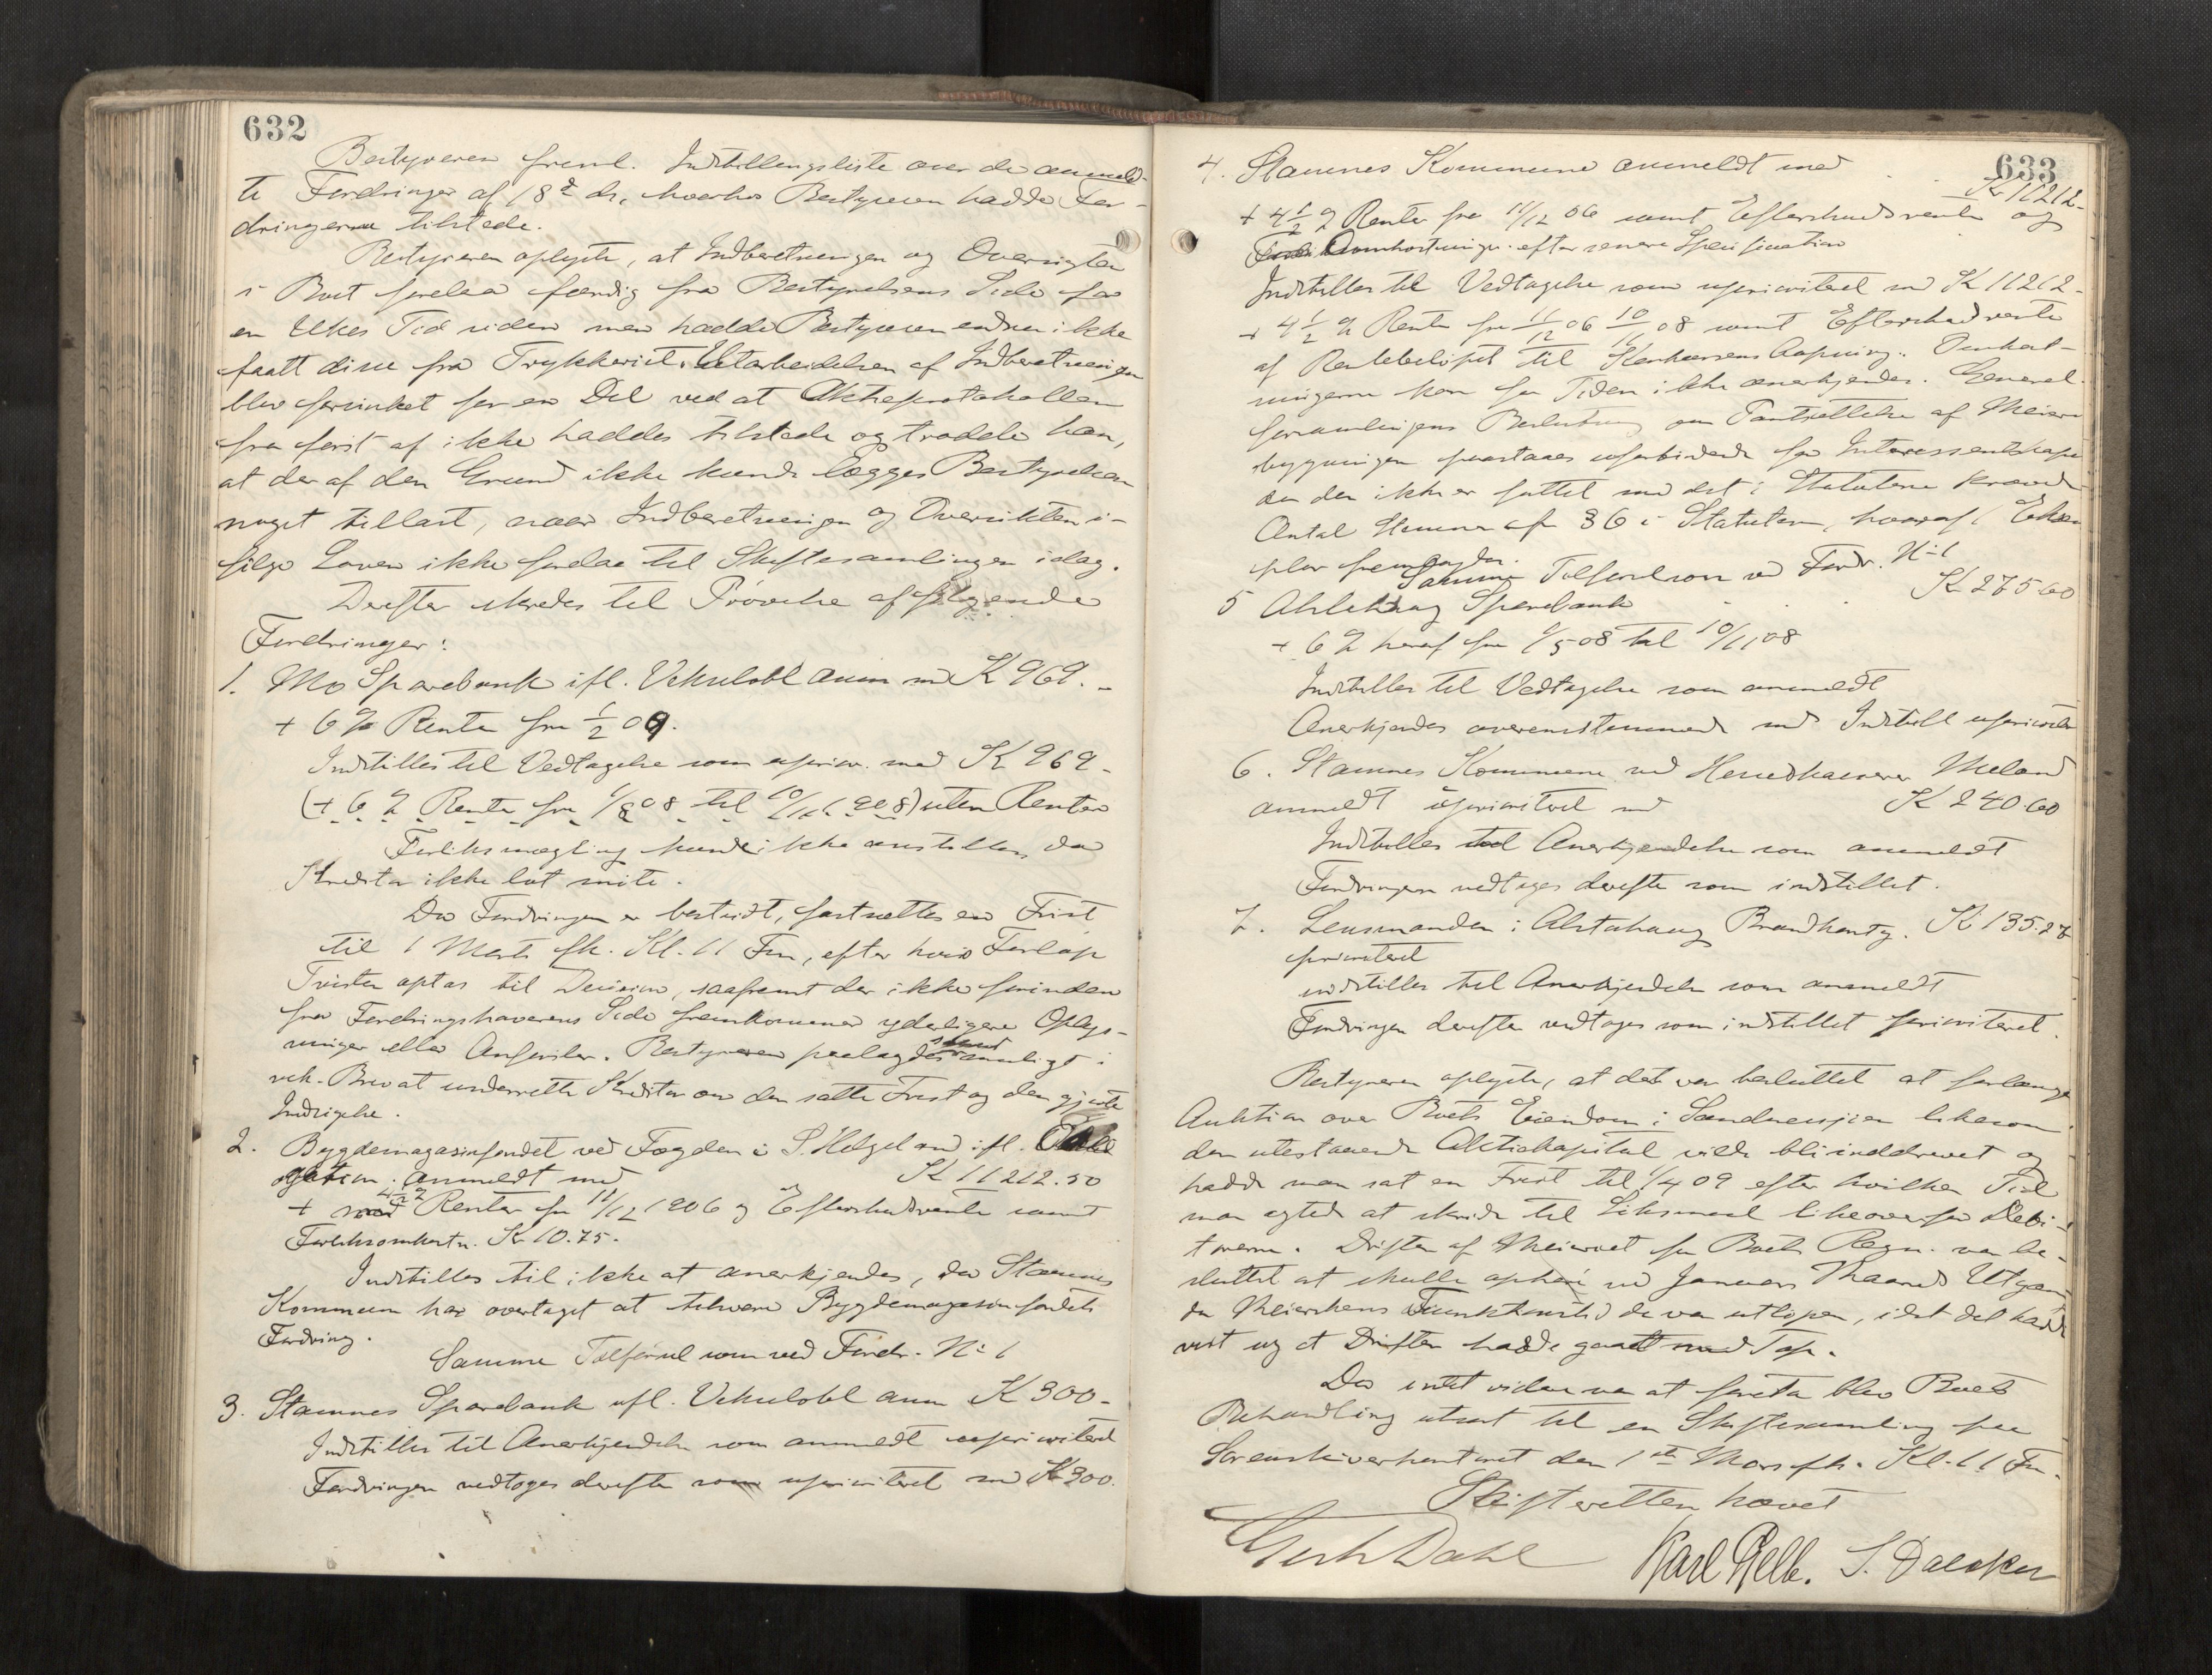 632
Bestyreren freml. Indstillingsliste over de anmeld-
te Fordringer af 18de ds, hvorhos Bestyreren hadde For-
dringerne tilstede.
Bestyreren oplyste, at Indberetningen og Oversigten
i Boet forelaa færdig fra Bestyrelsens Side for
en Ukes Tid siden men hadde Bestyreren endnu ikke
faatt disse fra Trykkeriet. Utarbeidelsen af Indberetningen
blev forsinket for en Del ved at Aktieprotokollen
fra først af ikke haddes tilstede og trodde han,
at der af den Grund ikke kunde lægges Bestyrelsen
noget tillast, naar Indberetningen og Oversikten i-
følge Loven ikke forelaa til Skiftesamlingen idag.
Derefter skredes til Prøvelse af følgende
Fordringer:
1. Mo Sparebank ifl. Vekselobl anm m K 969.-
+ 6 % Renter fra 1/2 09.
Indstilles til Vedtagelse som uprior. med K 969-
(+ 6 % Renter fra 1/8 08 til 10/11 1908) uten Renter
Forliksmægling kunde ikke anstilles da
Kreditor ikke lot møte.
Da Fordringen er bestridt, fastsættes en Frist
til 1 Marts fk. Kl. 11 Fm, efter hvis Forløp
Tvisten optas til Decision, saafremt der ikke forinden
fra Fordringshaverens Side fremkommer yderligere Oplys-
ninger eller Anførsler. Bestyreren paalagdes snarest muligst i
rek. Brev at underrette Kreditor om den satte Frist og den gjorte
Indsigelse.
2. Bygdemagasinfondet ved Fogden i S. Helgeland ifl. Obli
gation anmeldt med K 11212.50
+ 4 1/2 % Renter fra 11/12 1906 og Efterskudsrente samt
Forliksomkostn. Kr 10.75.
Indstilles til ikke at anerkjendes, da Stamnes
Kommune har overtaget at tilsvare Bygdemagasinfondets
Fordring.
Samme Tilførsel som ved Fordr. No 1
3. Stamnes Sparebank ifl. Vekselobl anm K 300-
Indstilles til Anerkjendelse som anmeldt uprioritert
Fordringen vedtoges derefter som uprioritert m K 300.
633
4. Stamnes Kommune anmeldt med Kr 11212-
+ 4 1/2 % Renter fra 11/12 06 samt Efterskudsrente og
Omkostninger efter senere Specifikation
Indstilles til Vedtagelse som uprioritert m K 11212-
+ 4 1/2 % Rente fra 11/12 06 10/11 08 samt Efterskudsrente
af Rentebeløpet til Konkursens Aapning. Omkost-
ningerne kan for Tiden ikke anerkjendes. General-
forsamlingens Beslutning om Pantsættelse af Meieri-
bygningen paastaaes uforbindende for Interessentskapet
da den ikke er fattet med det i Statuterne krævede
Antal Stemmer cfr § 6 i Statuterne, hvoraf 1 Eksem
plar fremlagdes.
Samme Tilførsel som ved Fordr. No 1
5 Alstahaug Sparebank K 275.60
+ 6 % heraf fra 1/5 08 til 10/11 08
Indstilles til Vedtagelse som anmeldt
Anerkjendes overensstemmende med Indstill uprioritert
6. Stamnes Kommune ved Herredskasserer Meland
anmeldt uprioritert med K 240.60
Indstilles til Anerkjendelse som anmeldt
Fordringen vedtoges derefter som indstillet.
7. Lensmanden i Alstahaug Brandkontg. K 135.27
prioritert
indstilles til Anerkjendelse som anmeldt
Fordringen derefter vedtoges som indstillet prioriteret.
Bestyreren oplyste, at det var besluttet at forlange
Auktion over Boets Eiendom i Sandnessjøen likesom
den utestaaende Aktiekapital vilde bli inddrevet og
hadde man sat en Frist til 1/4 09 efter hvilken Tid
man agted at skride til Søksmaal likeoverfor Debi-
torerne. Driften af Meieriet for Boets Regn. var be-
sluttet at skulle ophøre ved Januars Maaneds Utgang
da Meierskens Funktionstid da var utløpen, idet det hadde
vist sig at Driften hadde gaatt med Tap.
Da intet videre var at foreta blev Boets
Behandling utsat til en Skiftesamling paa
Sorenskriverkontoret den 1ste Mars fk. Kl. 11 Fm.
Skifteretten hævet
Dahl Karl S.